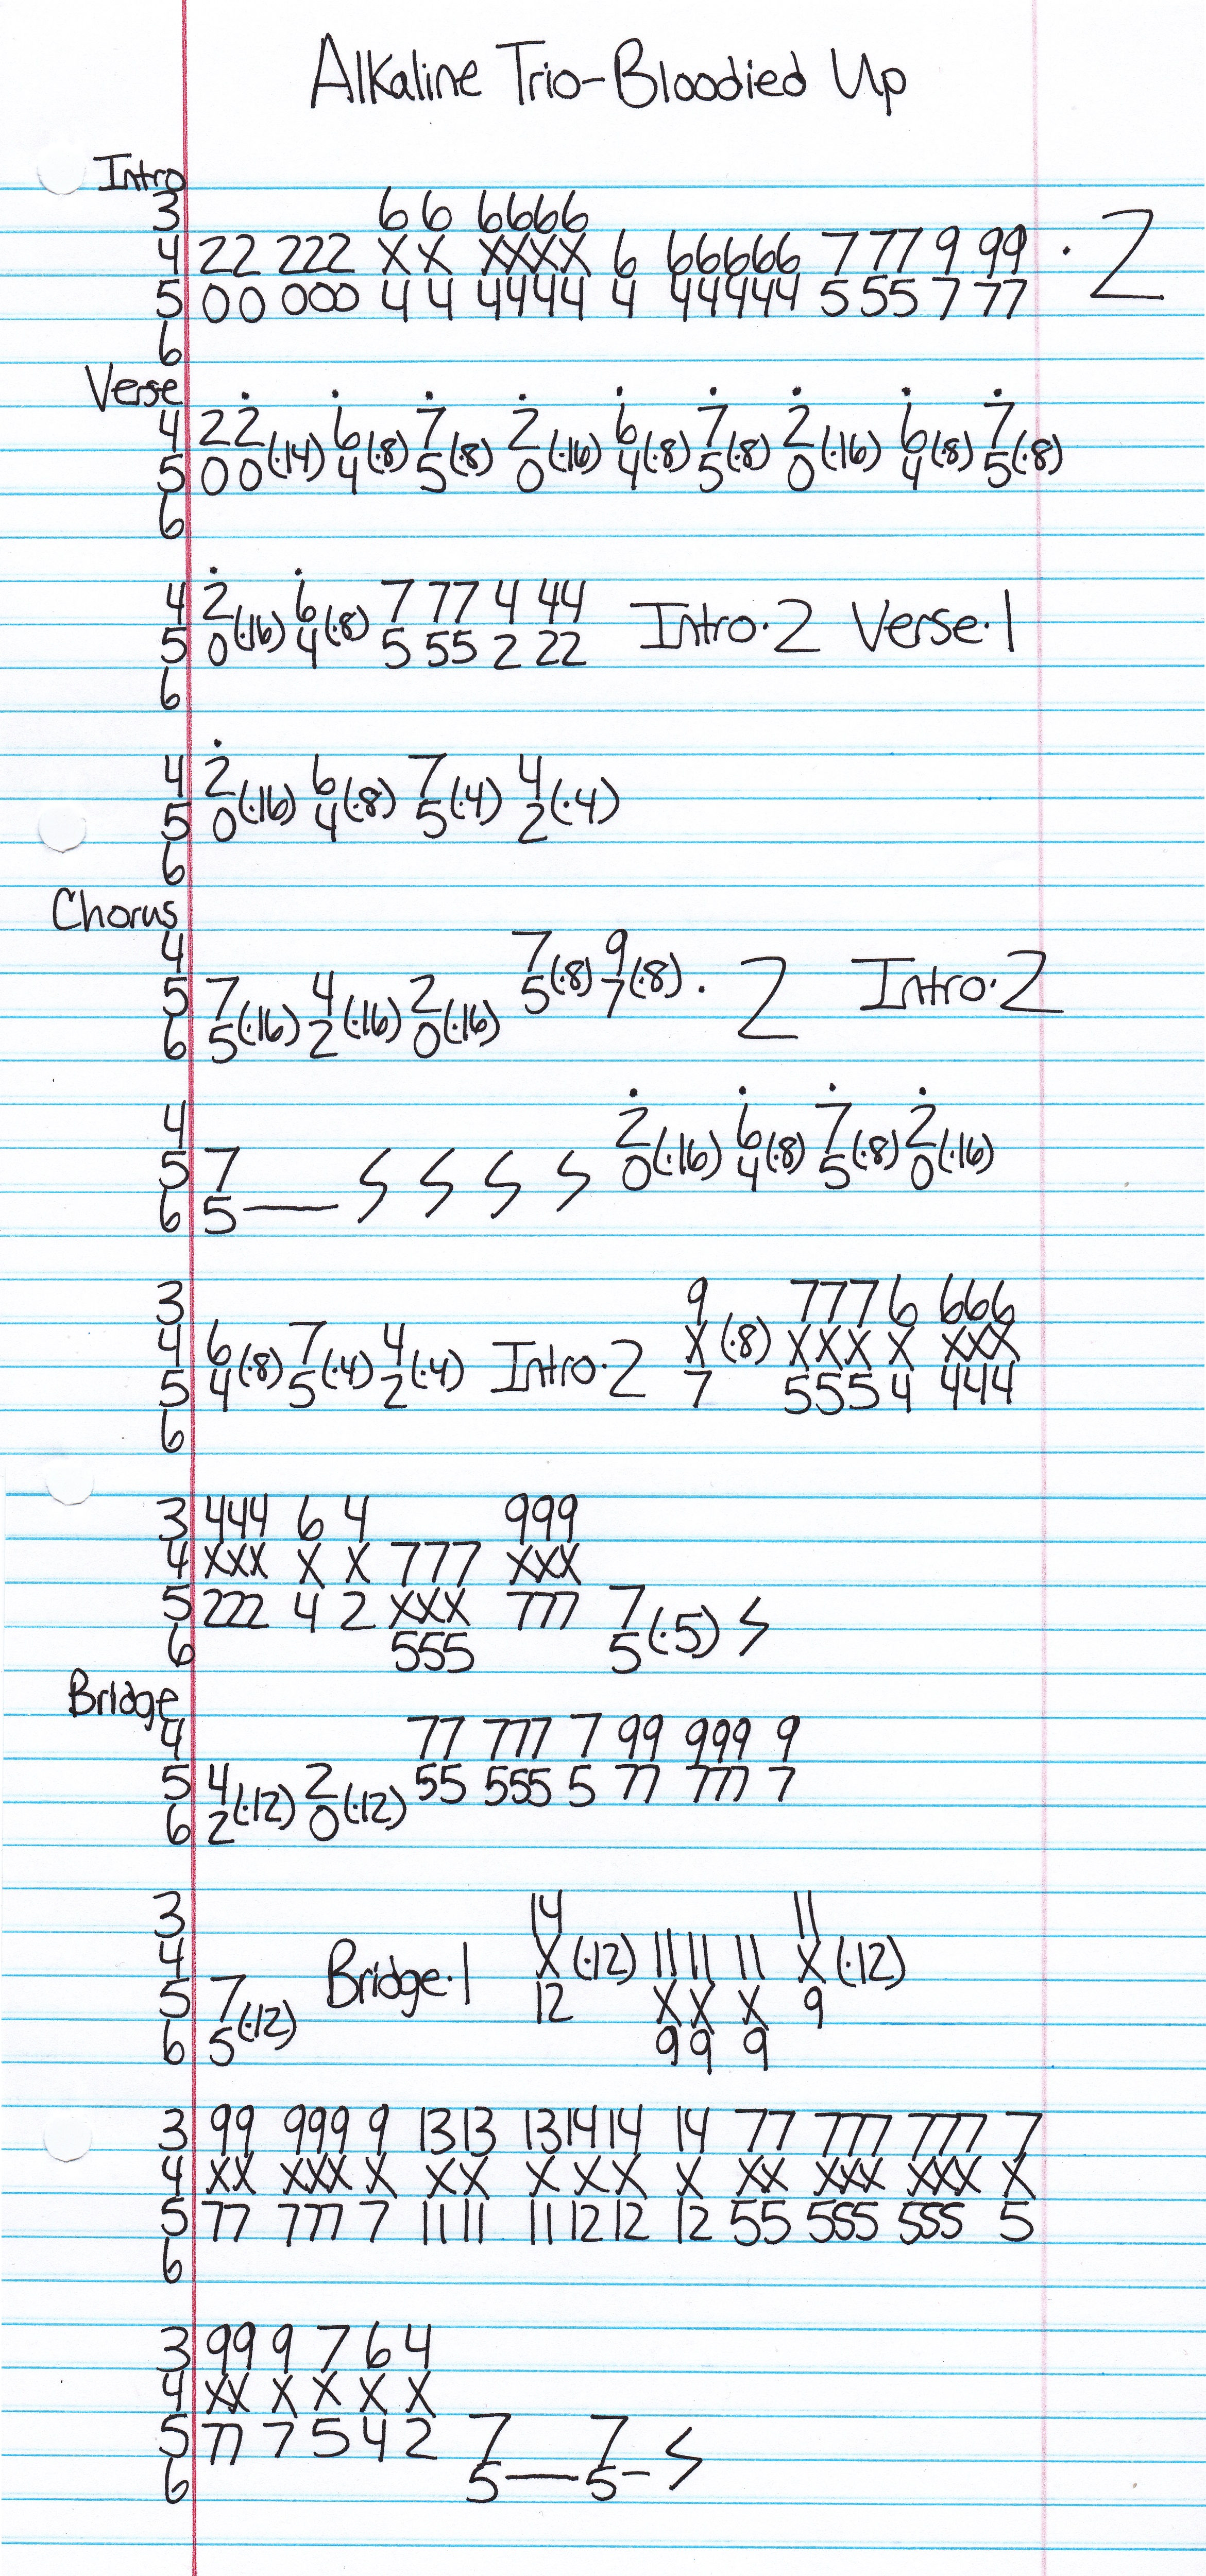 Alkaline Trio-Bloodied Up
Intro
3 6 6 6666
4 22 222 X X XXXX 6 66666 7 77 9 99 · 2
5 00 000 4 4 4444 4 44444 5 55 7 77
6
Verse
4 2 2 6 7 2 6 7 2 6 7
5 0 0(·14) 4(·8) 5(·8) 0(·16) 4(·8) 5(·8) 0(·16) 4(·8) 5(·8)
6
4 2 6 7 77 4 44 Intro·2 Verse·1
5 0(·16) 4(·8) 5 55 2 22
6
4 2 6 7 4
5 0(·16) 4(·8) 5(·4) 2(·4)
6
Chorus
4 7 9
5 7 4 2 5(·8) 7(·8) · 2 Intro·2
6 5(·16) 2(·16) 0(·16)
4 2 6 7 2
5 7 0(·16) 4(·8) 5(·8) 0(·16)
6 5
3 9 777 6 666
4 6 7 4 Intro·2 X (·8) XXX X XXX
5 4(·8) 5(·4) 2(·4) 7 555 4 444
6
3 444 6 4 999
4 XXX X X 777 XXX
5 222 4 2 XXX 777 7
6 555 5(·5)
Bridge
4 77 777 7 99 999 9
5 4 2 55 555 5 77 777 7
6 2(·12) 0(·12)
3 14 11
4 Bridge·1 X (·12) 11 11 11 X (·12)
5 7 12 X X X 9
6 5(·12) 9 9 9
3 99 999 9 13 13 13 14 14 14 77 777 777 7
4 XX XXX X X X X X X X XX XXX XXX X
5 77 777 7 11 11 11 12 12 12 55 555 555 5
6
3 99 9 7 6 4
4 XX X X X X
5 77 7 5 4 2 7 7
6 5—5–